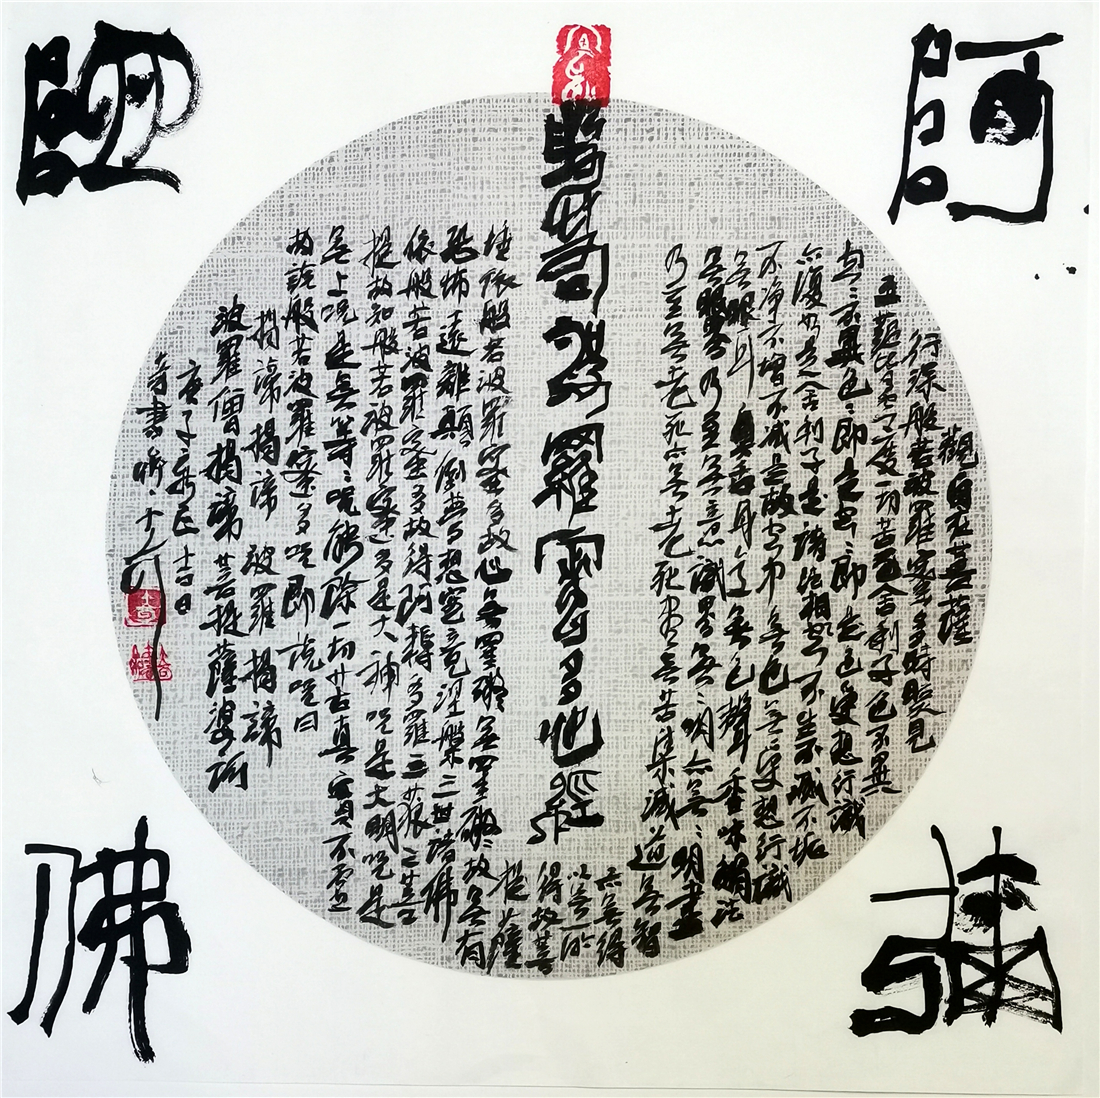 阿
彌
陀
佛
般若波羅蜜多心經
觀自在菩薩
行深般若波羅蜜多時照見
五蘊皆空度一切苦厄舍利子色不異
空〻不異色〻即是空〻即是色受想行識
亦復如是舍利子是諸法相空不生不滅不垢
不淨不增不減是故空中無色無受想行識
無眼耳鼻舌身意無色聲香味觸法
無眼界乃至無意識界無〻明亦無〻明盡
乃至無老死亦無老死盡無苦集滅道無智
亦無得
以無所
得故菩
提薩
埵依般若波羅蜜多故心無罣礙無罣礙故無有
恐怖遠離顛倒夢想究竟涅槃三世諸佛
依般若波羅蜜多故得阿耨多羅三藐三菩
提故知般若波羅蜜多是大神咒是大明咒是
無上咒是無等〻咒能除一切苦真實不虛
故說般若波羅蜜多咒即說咒曰
揭諦揭諦波羅揭諦
波羅僧揭諦菩提薩婆訶
庚子新正十四日
奇書